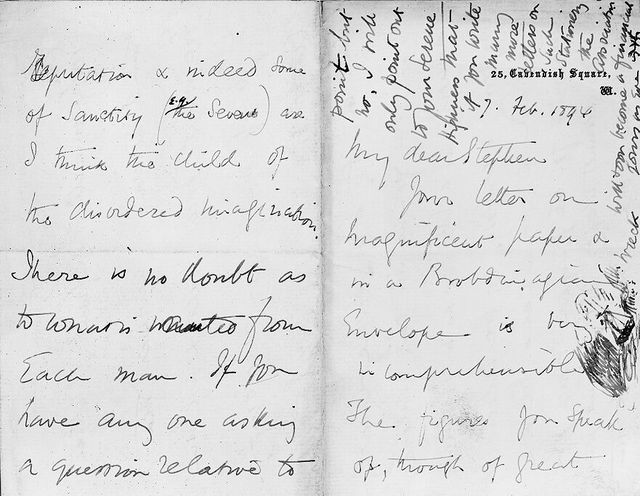 25, Cavendish Square,
W.
7. Feb. 1894
My dear Stephen
Your letter on
magnificent paper &
in a Brobdinagian
Envelope is very
incomprehensible
The figures you speak
of, though of great
Reputation & indeed some
of Sanctity (e.g. the Seven) are
I think the child of
the disordered imagination.
There is no doubt as
to what is wanted from
Each man. If you
have any one asking
a question relative to
point but
no, I will
only point out
to your Serene
Highness that
if you write
many
more
letters on
such
stationery
the
Association
will soon become a financial
wreck